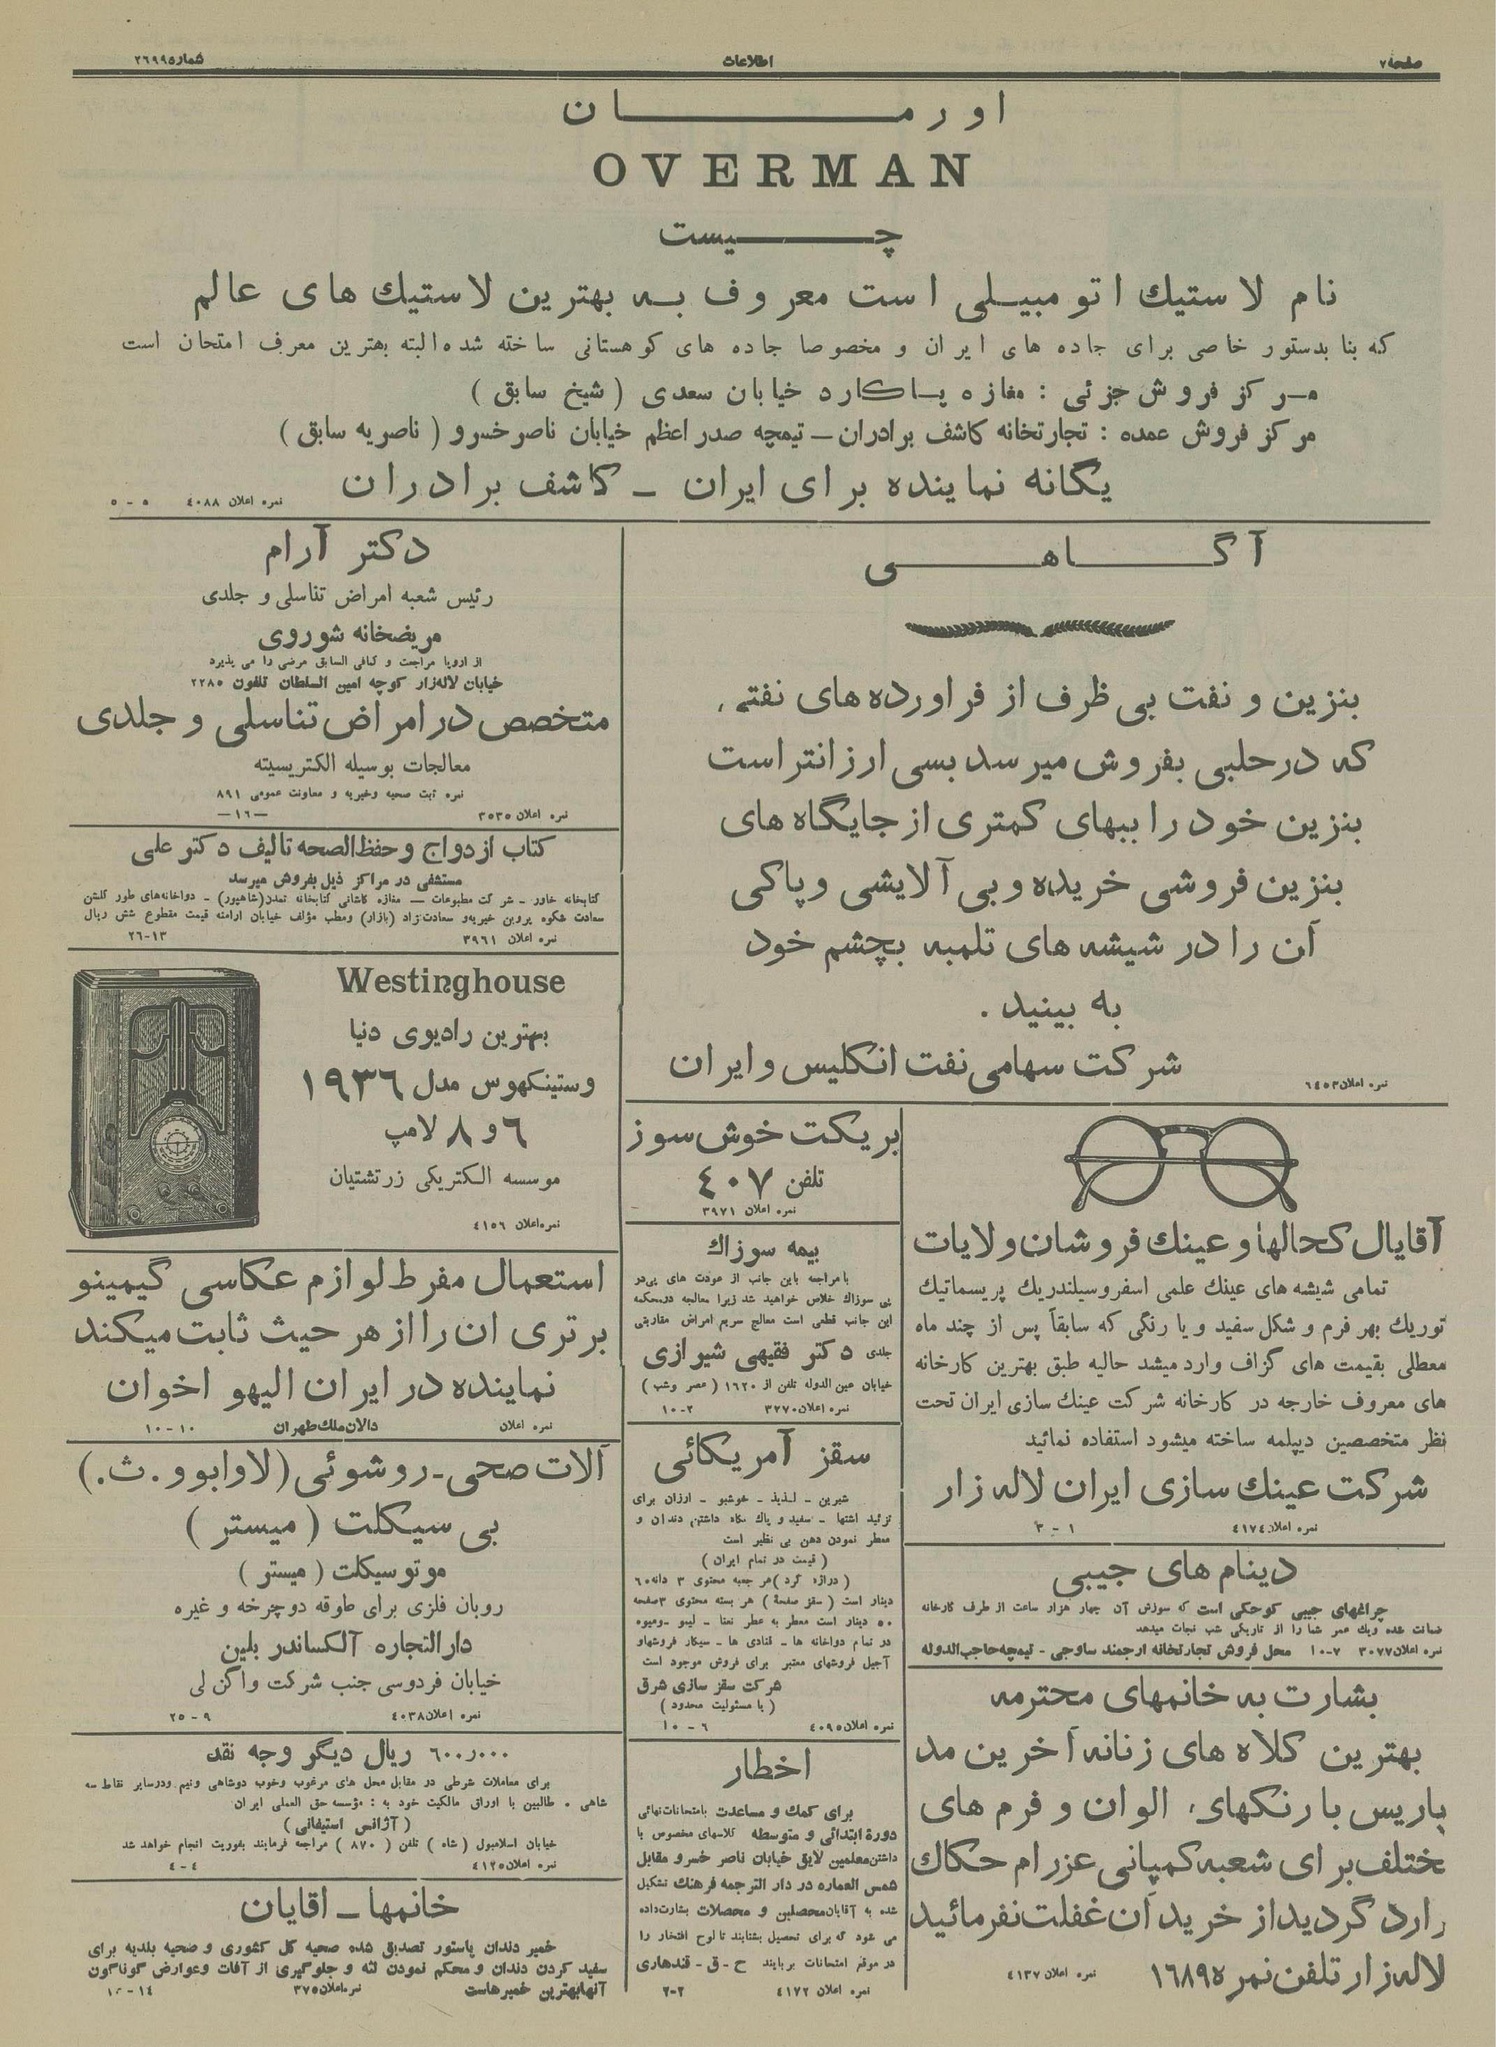 صفحه ۷
اطلاعات
شماره ۲٦۹۹
اورمان
OVERMAN
چیست
نام لاستیك اتومبیلی است معروف به بهترین لاستیك های عالم
که بنا بدستور خاصی برای جاده های ایران و مخصوصا جاده های کوهستانی ساخته شده البته بهترین معرف امتحان است
مرکز فروش جزئی : مغازه پاکارد خیابان سعدی ( شیخ سابق )
مرکز فروش عمده : تجارتخانه کاشف برادران – تیمچه صدر اعظم خیابان ناصر خسرو ( ناصریه سابق )
یگانه نماینده برای ایران – کاشف برادران
نمره اعلان ٤۰۸۸ ٥ – ٥
آگاهی
بنزین و نفت بی ظرف از فراورده های نفتی
که در حلبی بفروش میرسد بسی ارزانتر است
بنزین خود را ببهای کمتری از جایگاه های
بنزین فروشی خریده و بی آلایشی و پاکی
آن را در شیشه های تلمبه بچشم خود
به بینید .
شرکت سهامی نفت انگلیس و ایران
نمره اعلان ٦٤٥۳
آقایال کحالها و عینك فروشان ولایات
تمامی شیشه های عینك علمی اسفروسیلندریك پریسماتیك
توریك بهر فرم و شکل سفید و یا رنگی که سابقاً پس از چند ماه
معطلی بقیمت های گزاف وارد میشد حالیه طبق بهترین کارخانه
های معروف خارجه در کارخانه شرکت عینك سازی ایران تحت
نظر متخصصین دیپلمه ساخته میشود استفاده نمائید
شرکت عینك سازی ایران لاله زار
نمره اعلان ٤۱۷٤ ۱ – ۳
دینام های جیبی
چراغهای جیبی کوچکی است که سوزش آن چهار هزار ساعت از طرف کارخانه
ضمانت شده ویك عمر شما را از تاریکی شب نجات میدهد
نمره اعلان ۳۰۷۷ ۷–۱۰ محل فروش تجارتخانه ارجمند ساوجی – تیمچه حاجب الدوله
بشارت به خانمهای محترمه
بهترین کلاه های زنانه آخرین مد
پاریس با رنگهای الوان و فرم های
ختلف برای شعبه کمپانی عزرام حکاك
رارد گردید از خرید آن غفلت نفرمائید
لاله زار تلفن نمره ۱٦۸۹٥
نمره اعلان ٤۱۳۷
بریکت خوش سوز
تلفن ٤۰۷
نمره اعلان ۳۹۷۱
بیمه سوزاك
با مراجعه باین جانب از عودت های پی در
پی سوزاك خلاص خواهید شد زیرا معالجه در محکمه
این جانب قطعی است معالج سریع امراض مقاربتی
جلدی دکتر فقیهی شیرازی
خیابان عین الدوله تلفن از ۱٦۲۰ ( عصر وشب )
نمره اعلان ۳۲۷۰ ۲–۱۰
سقز آمریکائی
شیرین – لذیذ – خوشبو – ارزان برای
تزئید اشتها – سفید و پاك نگاه داشتن دندان و
معطر نمودن دهن بی نظیر است
( قیمت در تمام ایران )
هر جعبه محتوی ۳ دانه ٦۰
دینار است ( سقز صفحهٔ ) هر بسته محتوی ۳ صفحه
٥۰ دینار است معطر به عطر نعنا – لیمو – ومیوه
در تمام دواخانه ها – قنادی ها – سیگار فروشها و
آجیل فروشهای معتبر برای فروش موجود است
شرکت سقز سازی شرق
( با مسئولیت محدود )
نمره اعلان ٤۰۹٥ ٦ – ۱۰
اخطار
برای کمك و مساعدت بامتحانات نهائی
دورهٔ ابتدائی و متوسطه کلاسهای مخصوص با
داشتن معلمین لایق خیابان ناصر خسرو مقابل
شمس العماره در دار الترجمه فرهنك تشکیل
شده به آقایان محصلین و محصلات بشارت داده
می شود که برای تحصیل بشتابند تا لوح افتخار را
در موقع امتحانات بربایند ح – ق – قندهاری
نمره اعلان ٤۱۷۲ ۲–۲
دکتر آرام
رئیس شعبه امراض تناسلی و جلدی
مریضخانه شوروی
از اروپا مراجعت و کافی السابق مرضی را می پذیرد
خیابان لاله زار کوچه امین السلطان تلفون ۲۲۸٥
متخصص در امراض تناسلی و جلدی
معالجات بوسیله الکتریسیته
نمره ثبت صحیه وخیریه و معاونت عمومی ۸۹۱
نمره اعلان ۳٥۳٥ –۱٦–
کتاب ازدواج و حفظ الصحه تالیف دکتر علی
مستشفی در مراکز ذیل بفروش میرسد
کتابخانه خاور – شرکت مطبوعات – مغازه کاشانی کتابخانه تمدن (شاهپور) – دواخانه‌های طور گلشن
سعادت شکوه پروین خیریه و سعادت نژاد (بازار) ومطب مؤلف خیابان ارامنه قیمت مقطوع شش ریال
نمره اعلان ۳۹٦۱ ۱۳–۲٦
Westinghouse
بهترین رادیوی دنیا
وستینکهوس مدل ۱۹۳٦
٦ و ۸ لامپ
موسسه الکتریکی زرتشتیان
نمره اعلان ٤۱٥٦
استعمال مفرط لوازم عکاسی گیمینو
برتری ان را از هر حیث ثابت میکند
نماینده در ایران الیهو اخوان
نمره اعلان دالان ملك طهران ۱۰ – ۱۰
آلات صحی – روشوئی (لاوابوو . ث .)
بی سیکلت ( میستر )
موتوسیکلت ( میستر )
روبان فلزی برای طوقه دوچرخه و غیره
دارالتجاره آلکساندر بلین
خیابان فردوسی جنب شرکت واگن لی
نمره اعلان ٤۰۳۸ ۹ – ۲٥
٦۰۰٫۰۰۰ ریال دیگر وجه نقد
برای معاملات شرطی در مقابل محل های مرغوب وخوب دوشاهی ونیم ودرسایر نقاط سه
شاهی . طالبین با اوراق مالکیت خود به : مؤسسه حق العملی ایران
( آژانس استیفانی )
خیابان اسلامبول ( شاه ) تلفن ( ۸۷۰ ) مراجعه فرمایند بفوریت انجام خواهد شد
نمره اعلان ٤۱۲٥ ٤ – ٤
خانمها – اقایان
خمیر دندان پاستور تصدیق شده صحیه کل کشوری و صحیه بلدیه برای
سفید کردن دندان و محکم نمودن لثه و جلوگیری از آفات وعوارض گوناگون
آنها بهترین خمیرهاست نمره اعلان ۳۷٥